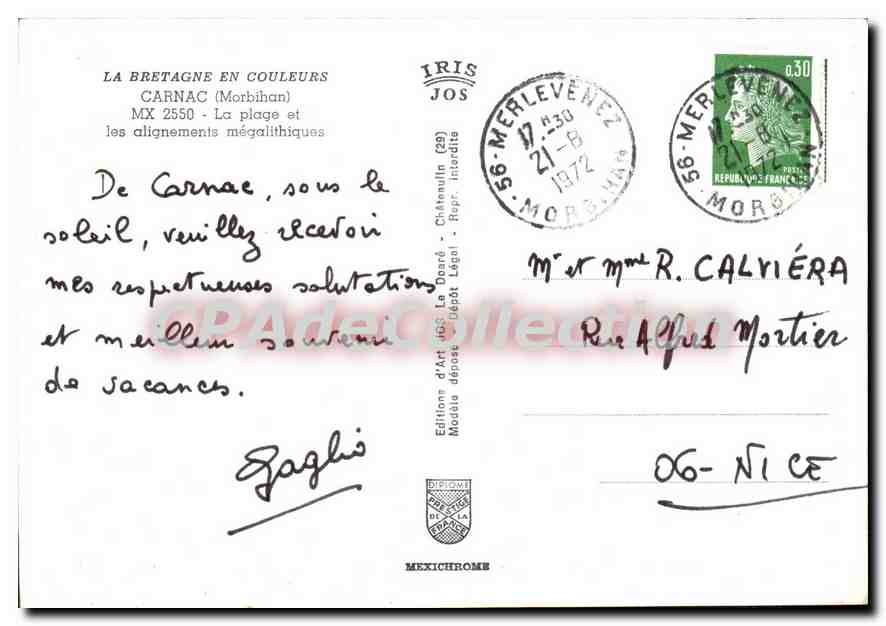 LA BRETAGNE EN COULEURS
CARNAC (Morbihan)
MX 2550 - La plage et
les alignements mégalithiques
De Carnac, sous le
soleil, veuillez recevoir
mes respectueuses salutations
et meilleur souvenir
de vacances.
Gaglio
IRIS
JOS
Editions d'Art JOS Le Doaré - Châteaulin (29)
Modèle déposé - Dépôt Légal - Repr. interdite
DIPLOME
PRESTIGE
DE LA
FRANCE
MEXICHROME
56-MERLEVENEZ
17H30
21-8
1972
MORBIHAN
0,30
POSTES
REPUBLIQUE FRANÇAISE
56-MERLEVENEZ
17H30
21-8
1972
MORBIHAN
Mr et Mme R. CALVIÉRA
Rue Alfred Mortier
06-NICE
CPAdeCollection